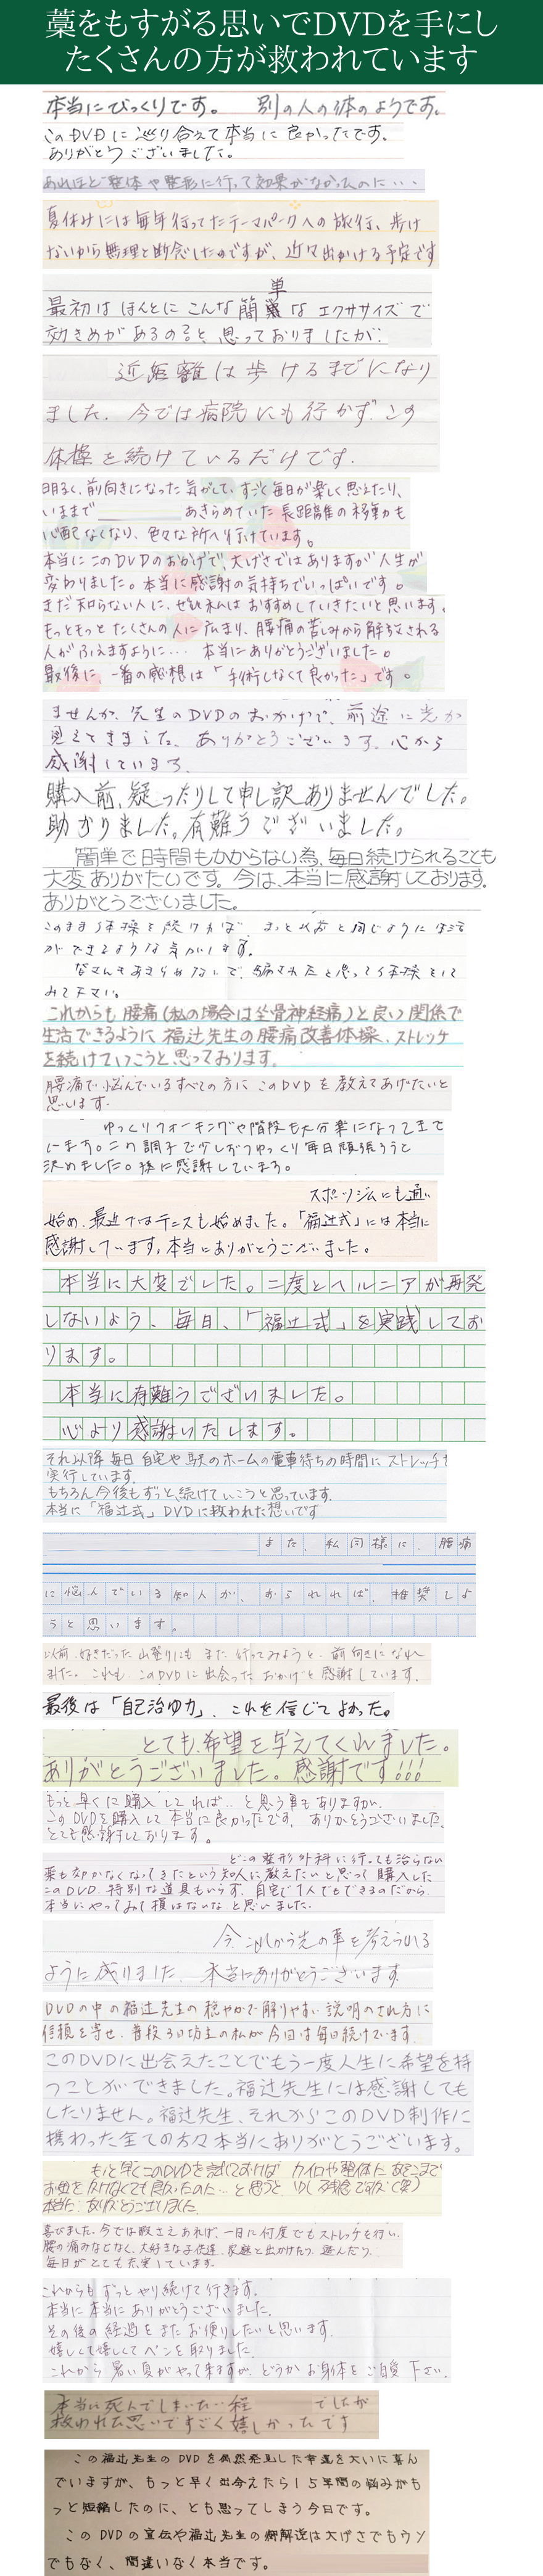 藁をもすがる思いでDVDを手にし
たくさんの方が救われています
本当にびっくりです。 別の人の体のようです。
このDVDに巡り合えて本当に良かったです。
ありがとうございました。
あれほど整体や整形に行って効果がなかったのに・・・
夏休みには毎年行ってたテーマパークへの旅行、歩け
ないから無理と断念したのですが、近々出かける予定です
単
最初はほんとにこんな簡な エクササイズで
効きめがあるの?と思っておりましたが、
近距離は歩けるまでになり
ました。今では病院にも行かず、この
体操を続けているだけです。
明るく、前向きになった気がして、すごく毎日が楽しく思えたり、
いままで あきらめていた長距離の移動も
心配なくなり、色々な所へ行けています。
本当にこのDVDのおかげで、大げさではありますが人生が
変わりました。本当に感謝の気持ちでいっぱいです。
まだ知らない人に、ぜひ私はおすすめしていきたいと思います。
もっともっとたくさんの人に広まり、腰痛の苦しみから解放される
人がふえますように… 本当にありがとうございました。
最後に、一番の感想は「手術しなくて良かった」です。
ませんが、先生のDVDのおかげで、前途に光が
見えてきました。ありがとうございます。心から
感謝しています。
購入前、疑ったりして申し訳ありませんでした。
助かりました。有難うございました。
簡単で時間もかからない為、毎日続けられることも
大変ありがたいです。今は、本当に感謝しております。
ありがとうございました。
このまま体操を続ければ、きっと以前と同じように生活
ができるような気がします。
なさんもあきらめないで、騙されたと思って体操をして
みて下さい。
これからも腰痛(私の場合は坐骨神経痛)と良い関係で
生活できるように福辻先生の腰痛改善体操、ストレッチ
を続けていこうと思っております。
腰痛で悩んでいるすべての方にこのDVDを教えてあげたいと
思います。
ゆっくりウォーキングや階段も大分楽になってきて
います。この調子で少しずつゆっくり毎日頑張ろうと
決めました。 に感謝しています。
スポーツジムにも通い
始め、最近ではテニスも始めました。「福辻式」には本当に
感謝しています。本当にありがとうございました。
本当に大変でした。二度とヘルニアが再発
しないよう、毎日、「福辻式」を実践してお
ります。
本当に有難うございました。
心より感謝いたします。
それ以降毎日自宅や駅のホームの電車待ちの時間にストレッチを
実行しています。
もちろん今後もずっと続けていこうと思っています。
本当に「福辻式」DVDに救われた想いです
また、私同様に、腰痛
に悩んでいる知人が、おられれば、推奨しよ
うと思います。
以前、好きだった山登りにもまた行ってみようと、前向きになれ
ました。これも、このDVDに出会ったおかげと感謝しています。
最後は「自己治ゆ力」、これを信じてよかった。
とても希望を与えてくれました。
ありがとうございました。感謝です!!!
もっと早くに購入してれば…と思う事もありますが、
このDVDを購入して本当に良かったです。ありがとうございました。
とても感謝しております。
どこの整形外科に行っても治らない
薬も効かなくなってきたという知人に教えたいと思って購入した
このDVD。特別な道具もいらず、自宅で1人でもできるのだから
本当にやってみて損はないなと思いました。
今、これから先の事を考えられる
ように成りました。本当にありがとうございます
DVDの中の福辻先生の穏やかで解りやすい説明のされ方に
信頼を寄せ、普段3日坊主の私が今日は毎日続けています。
このDVDに出会えたことでもう一度人生に希望を持
つことができました。福辻先生には感謝しても
したりません。福辻先生、それからこのDVD制作に
携わった全ての方々本当にありがとうございます。
もっと早くこのDVDを試しておけば、カイロや整体にあそこまで
お金をかけなくても良かったのに…と思うと、ゆいつ残念ですが(笑)
本当に、ありがとうございました。
喜びました。今では暇さえあれば、一日に何度でもストレッチを行い、
腰の痛みなどなく、大好きな子供達、家庭と出かけたり、遊んだり、
毎日がとても充実しています。
これからもずっとやり続けて行きます。
本当に本当にありがとうございました。
その後の経過をまたお便りしたいと思います。
嬉しくて嬉しくてペンを取りました。
これから暑い夏がやって来ますが、どうかお身体をご自愛下さい。
本当に死んでしまいたい程 でしたが
救われた思いですごく嬉しかったです
この福辻先生のDVDを偶然発見した幸運を大いに喜ん
でいますが、もっと早く出会えたら15年間の悩みがも
っと短縮したのに、とも思ってしまう今日です。
このDVDの宣伝や福辻先生の解説は大げさでもウソ
でもなく、間違いなく本当です。